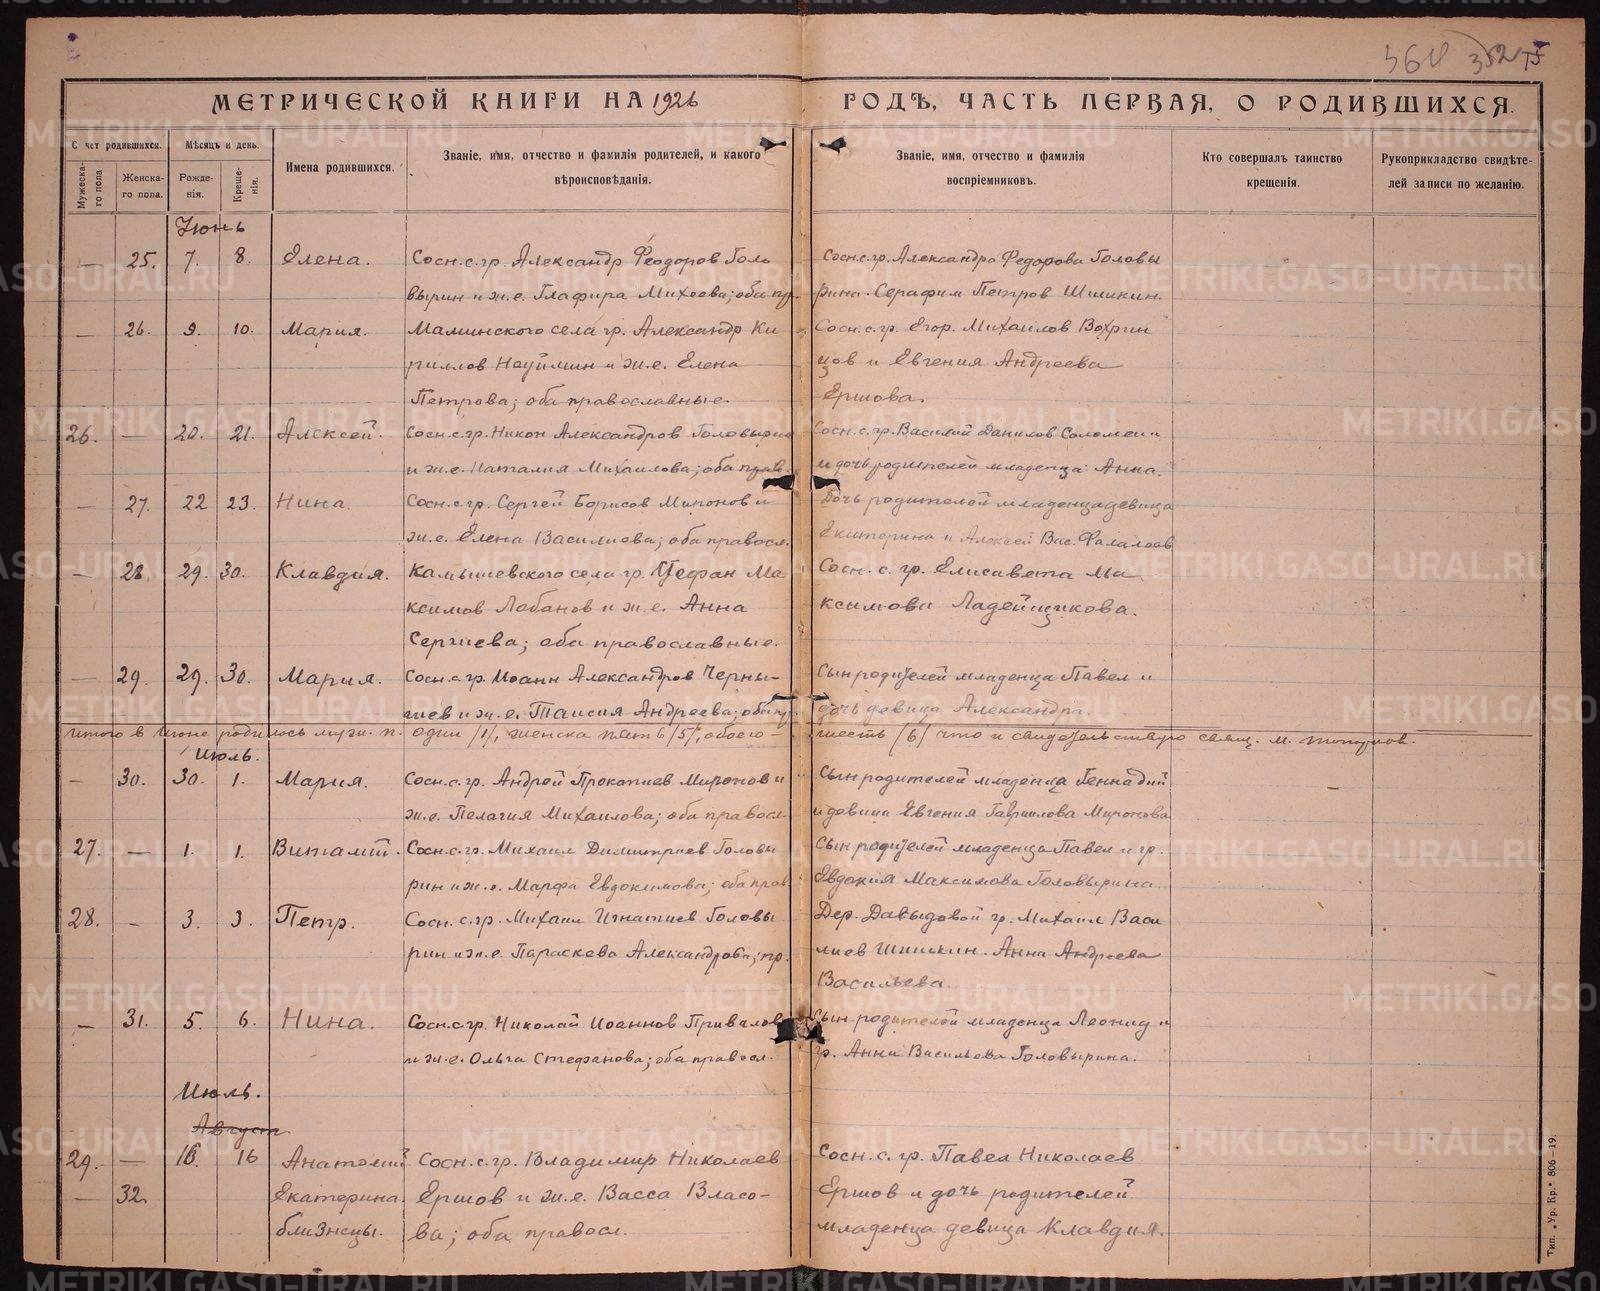 352
МЕТРИЧЕСКОЙ КНИГИ НА 1926 ГОДЪ, ЧАСТЬ ПЕРВАЯ, О РОДИВШИХСЯ.
Счет родившихся. Мѣсяцъ и день. Имена родившихся. Званіе, имя, отчество и фамилія родителей, и какого вѣроисповѣданія. Званіе, имя, отчество и фамилія воспріемниковъ. Кто совершалъ таинство крещенія. Рукоприкладство свидѣтелей записи по желанію.
Мужескаго пола Женскаго пола. Рожденія. Крещенія.
Июнь
— 25. 7. 8. Елена. Сосн. с. гр. Александр Феодоров Голо Сосн. с. гр. Александра Федорова Головы
вырин и ж. е. Глафира Михеева; оба пр. рина. Серафим Петров Шишкин.
— 26. 9. 10. Мария. Маминского села гр. Александр Ки Сосн. с. гр. Егор Михаилов Вохрин
риллов Науймин и ж. е. Елена цов и Евгения Андреева
Петрова; оба православные. Ершова.
26. — 20. 21. Алексей. Сосн. с. гр. Никон Александров Головырин Сосн. с. гр. Василий Данилов Соломеин
и ж. е. Наталия Михаилова; оба прав. и дочь родителей младенца Анна.
— 27. 22 23. Нина. Сосн. с гр. Сергей Борисов Миронов и Дочь родителей младенца девица
ж. е. Елена Василиева; оба правосл. Екатерина и Алексей Вас. Фалалеев
— 28. 29. 30. Клавдия. Камышевского села гр. Стефан Ма Сосн. с. гр. Елисавета Ма
ксимов Лобанов и ж. е. Анна ксимова Ладейщикова.
Сергиева; оба православные.
— 29. 29. 30. Мария. Сосн. с гр. Иоанн Александров Черны- Сын родителей младенца Павел и
шев и ж. е. Таисия Андреева; оба пр. дочь девица Александра.
Итого в июне родилось муж. п. один /1/, женска пять /5/, обоего — шесть /6/ что и свидетельствую свящ. М.
Июль.
— 30. 30. 1. Мария. Сосн. с. гр. Андрей Прокопиев Миронов и Сын родителей младенца Геннадий
ж. е. Пелагия Михаилова; оба правосл. и девица Евгения Гавриилова Миронова
27. — 1. 1. Виталий. Сосн. с. гр. Михаил Димитриев Головы Сын родителей младенца Павел и гр.
рин и ж. е. Марфа Евдокимова; оба прав. Евдокия Максимова Головырина.
28. — 3. 3. Петр. Сосн. с. гр. Михаил Игнатиев Головы Дер. Давыдовой гр. Михаил Васи
рин и ж. е. Параскева Александрова; пр. лиев Шишкин. Анна Андреева
Васильева.
— 31. 5. 6. Нина. Сосн. с гр. Николай Иоаннов Привалов Сын родителей младенца Леонид и
и ж. е. Ольга Стефанова; оба правосл. гр. Анна Васильева Головырина.
Июль.
Август.
29. — 16. 16 Анатолий Сосн. с. гр. Владимир Николаев Сосн. с. гр. Павел Николаев
— 32. Екатерина. Ершов и ж. е. Васса Власо- Ершов и дочь родителей
близнецы. ва; оба правосл. младенца девица Клавдия.
Тип. „Ур. Кр." 806—19.
METRIKI.GASO-URAL.RU